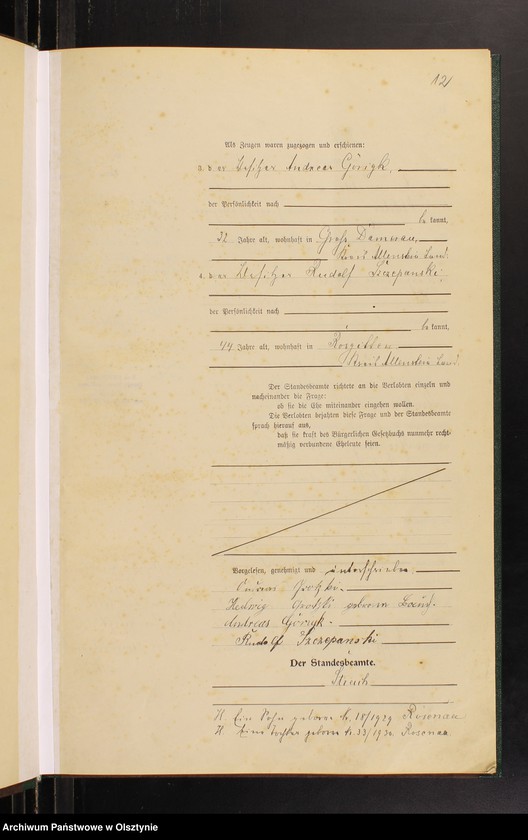 12
Als Zeugen waren zugezogen und erschienen:
der Besitzer Andreas Görigk,
der Persönlichkeit nach
bekannt,
32 Jahre alt, wohnhaft in Groß Damerau,
Kreis Allenstein Land.
der Besitzer Rudolf Szczepanski
der Persönlichkeit nach
bekannt,
44 Jahre alt, wohnhaft in
Kreis Allenstein Land
Der Standesbeamte richtete an die Verlobten einzeln und
nacheinander die Frage:
ob sie die Ehe miteinander eingehen wollen.
Die Verlobten bejahten diese Frage und der Standesbeamte
sprach hierauf aus,
daß sie kraft des Bürgerlichen Gesetzbuchs nunmehr recht-
mäßig verbundene Eheleute seien.
Vorgelesen, genehmigt und unterschrieben
Hedwig geborene
Andreas Görigk
Rudolf Szczepanski
Der Standesbeamte.
Ein Sohn geboren Nr. 18/1929 Rosenau
Eine Tochter geboren Nr. 33/193 Rosenau
Archiwum Państwowe w Olsztynie